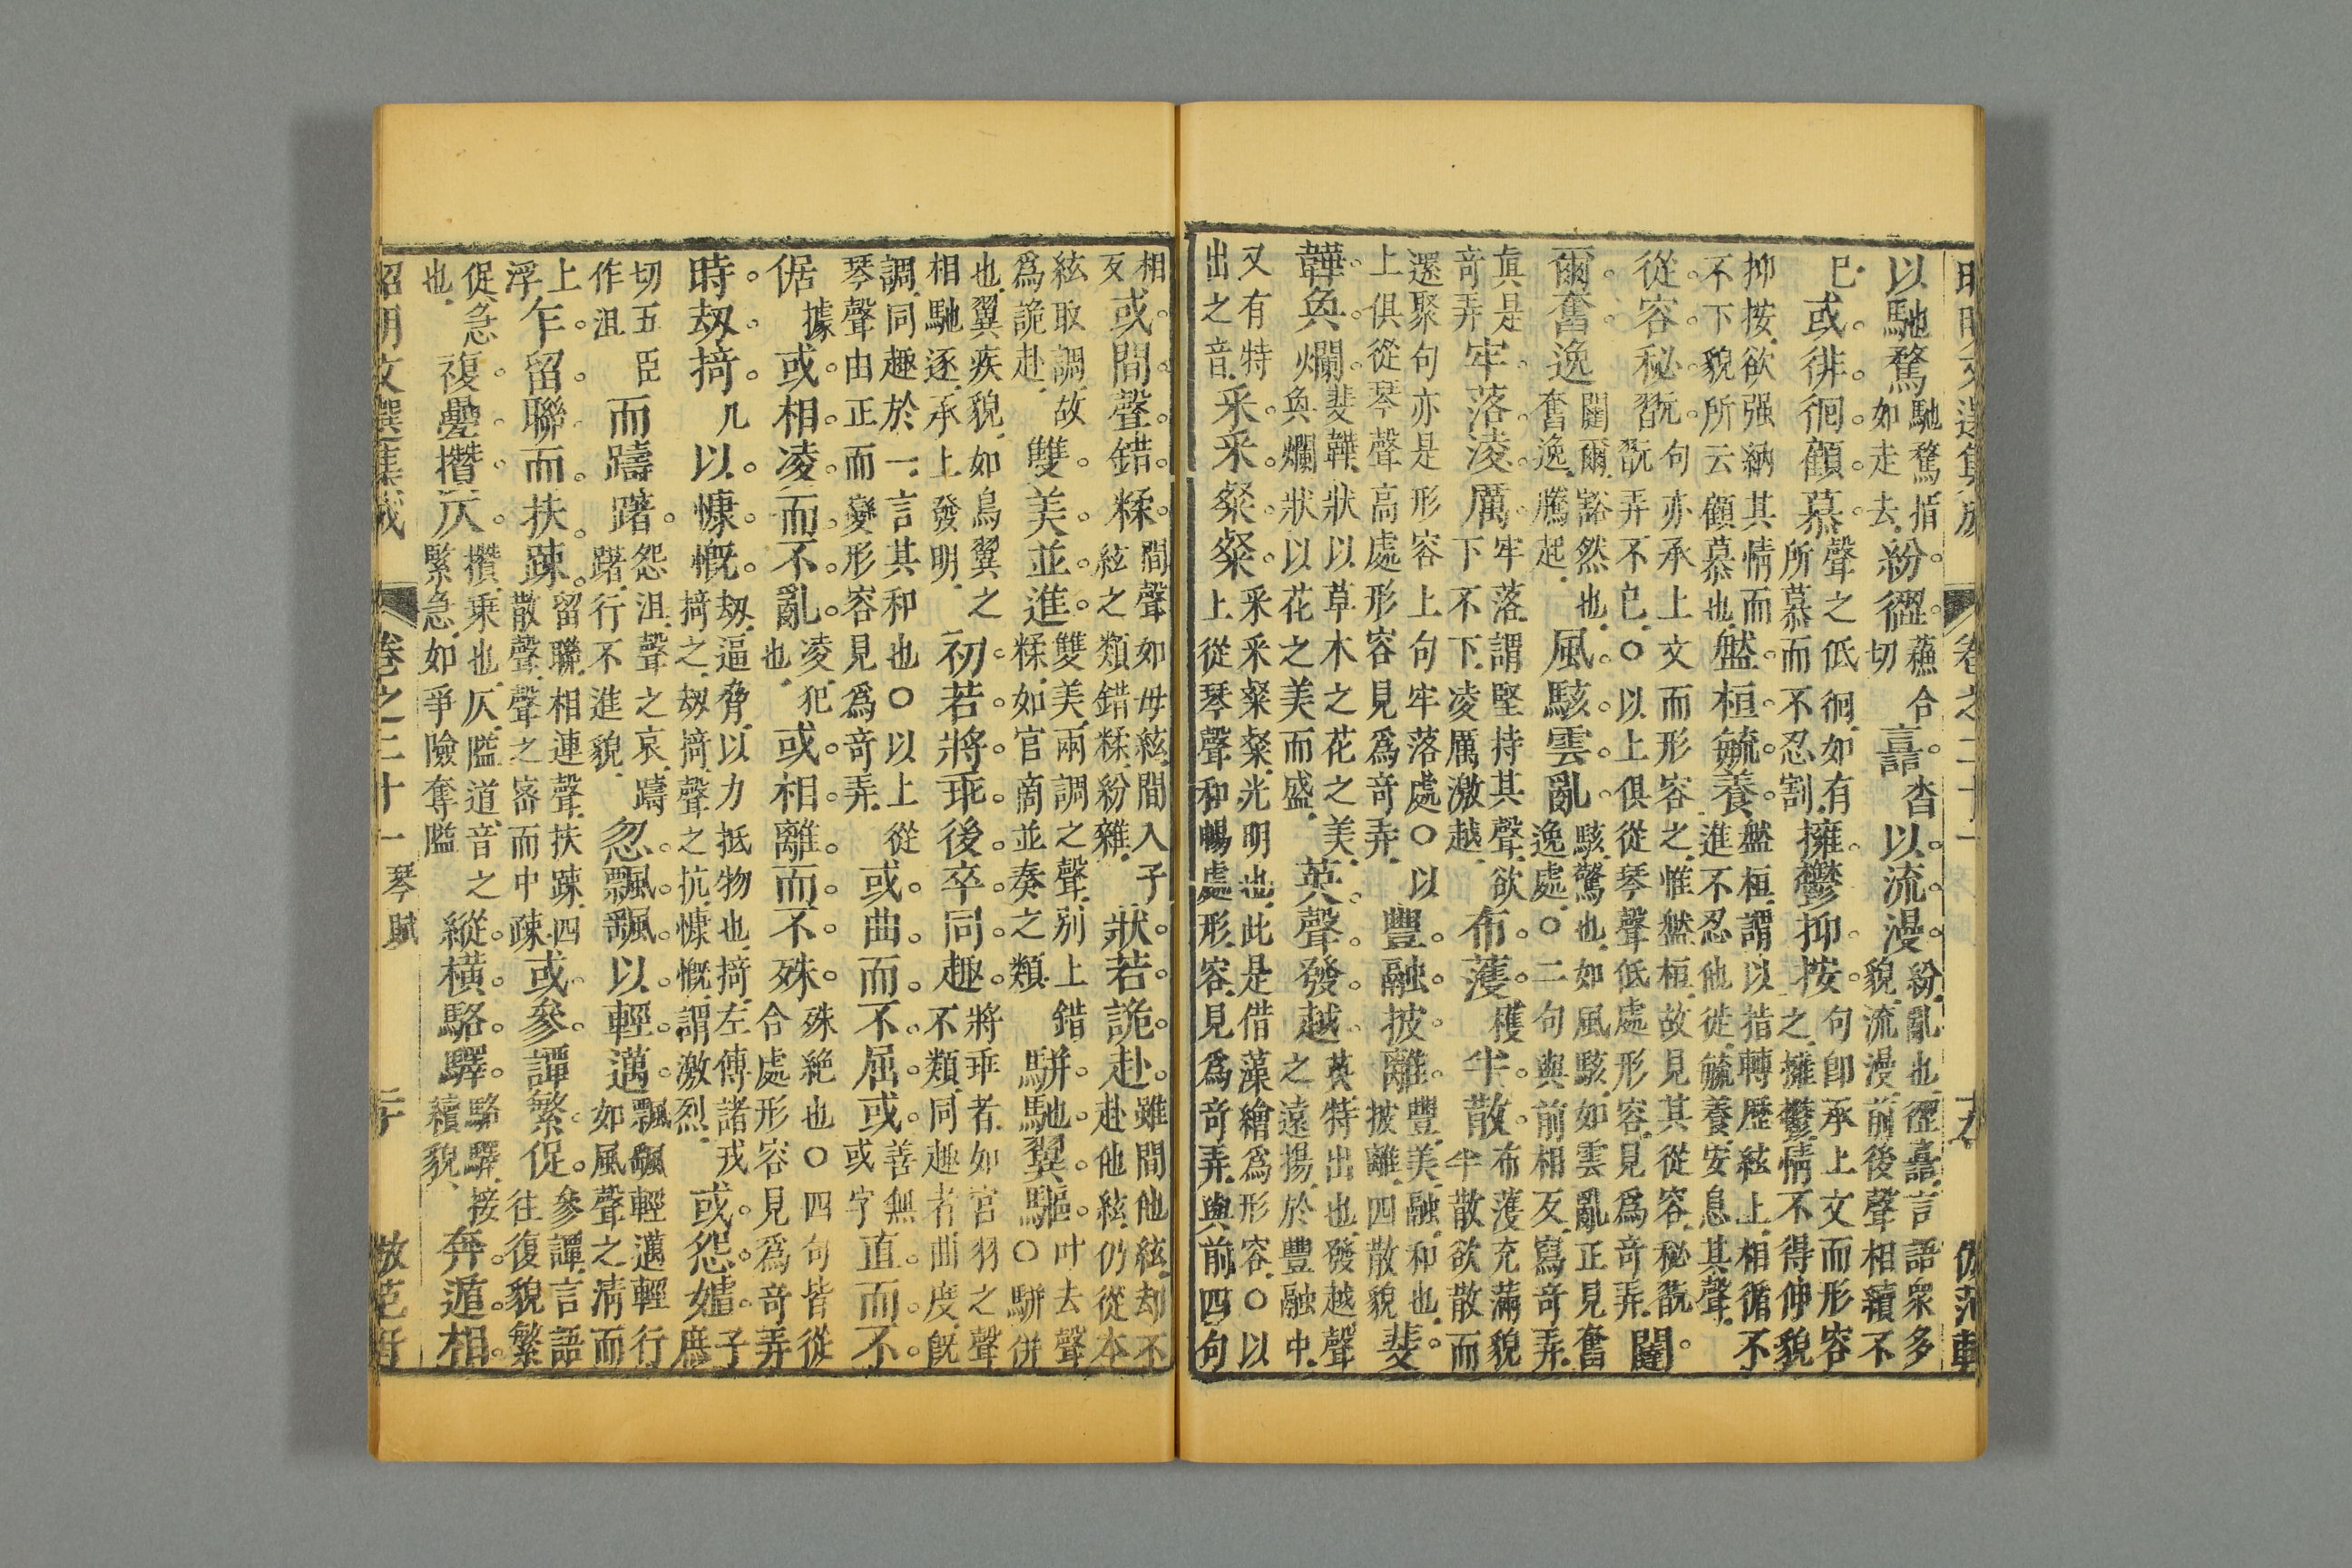 昭明文選集成 卷之二十一 十九 倣范軒
以馳騖馳騖指如走去紛澀蘊合切譶沓以流漫紛亂也澀譶言語衆多貌流漫前後聲相續不
已或徘徊顧慕聲之低徊如有所慕而不忍割擁鬱抑按句卽承上文而形容之擁鬱情不得伸貌
抑按欲强納其情而不下貌所云顧慕也盤桓毓養盤桓謂以指轉歷絃上相循不進不忍他徙毓養安息其聲
從容秘翫句亦承上文而形容之惟盤桓故見其從容秘翫翫弄不已○以上俱從琴聲低處形容見爲奇弄闥
爾奮逸闥爾豁然也奮逸騰起風駭雲亂駭驚也如風駭如雲亂正見奮逸處○二句與前相反寫奇弄
眞是奇弄牢落凌厲牢落謂堅持其聲欲下不下凌厲激越布濩濩半散布濩充滿貌半散欲散而
還聚句亦是形容上句牢落處○以上俱從琴聲高處形容見爲奇弄豐融披離豐美融和也披離四散貌斐
韡奐爛斐韡狀以草木之花之美奐爛狀以花之美而盛英聲發越英特出也發越聲之遠揚於豐融中
又有特出之音采采粲粲采采粲粲光明也此是借藻繪爲形容○以上從琴聲和暢處形容見爲奇弄與前四句
相反或間聲錯糅間聲如母絃間入子絃之類錯糅紛雜狀若詭赴雖間他絃却不赴他絃仍從本
絃取調故爲詭赴雙美並進雙美兩調之聲別上錯糅如宮商並奏之類駢馳翼驅叶去聲○駢併
也翼疾貌如鳥翼之相馳逐承上發明初若將乖後卒同趣將乖者如宮羽之聲不類同趣者曲度旣
調同趣於一言其和也○以上從琴聲由正而變形容見爲奇弄或曲而不屈或善無或字直而不
倨據或相凌而不亂凌犯也或相離而不殊殊絶也○四句皆從合處形容見爲奇弄
時刼掎几以慷慨刼逼脅以力抵物也掎左傳諸戎掎之刼掎聲之抗慷慨謂激烈或怨㜘子庶
切五臣作沮而躊躇怨沮聲之哀躊躇行不進貌忽飄颻以輕邁飄颻輕邁輕行如風聲之清而
上浮乍留聯而扶踈留聯相連聲扶踈四散聲聲之密而中疎或參譚繁促參譚言語往復貌繁
促急也複疊攢仄攢乘也仄隘道音之緊急如爭險奪隘縱橫駱驛駱驛接續貌奔遯相
昭明文選集成 卷之二十一 琴賦 二十 倣范軒